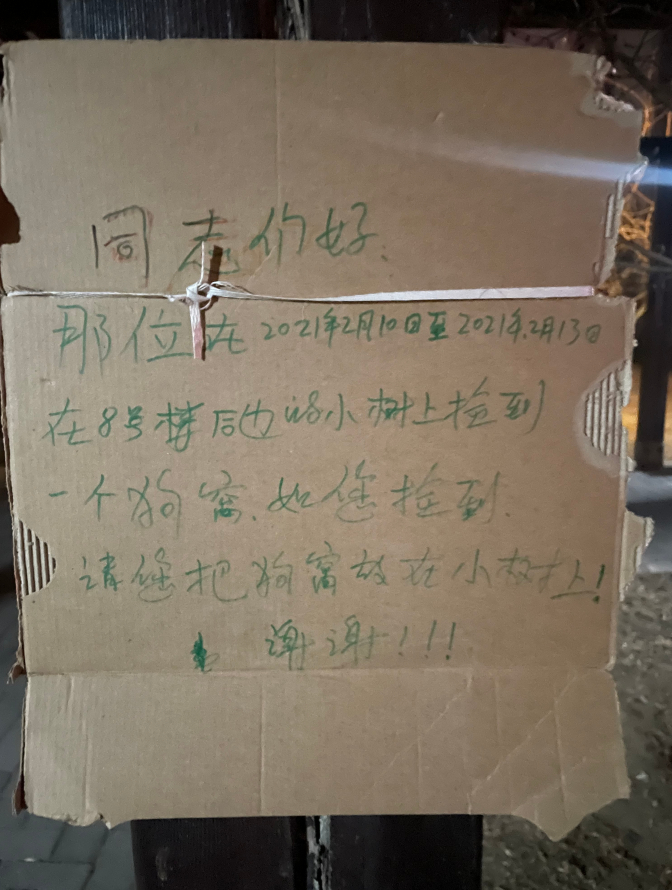 同志们好.
那位在2021年2月10日至2021年.2月13日
在8号楼后边的小树上捡到
一个狗窝、如您捡到.
请您把狗窝放在小树上!
谢谢!!!